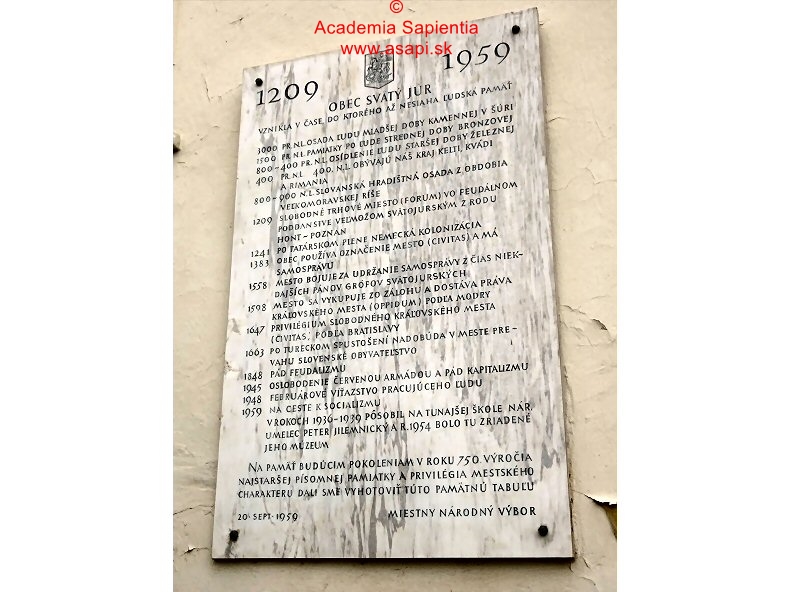 ©
Academia Sapientia
www.asapi.sk
1209 1959
OBEC SVÄTÝ JUR
VZNIKLA V ČASE, DO KTORÉHO AŽ NESIAHA ĽUDSKÁ PAMÄŤ
3000 PR.N.L. OSADA ĽUDU MLADŠEJ DOBY KAMENNEJ V ŠÚRI
1500 PR.N.L. PAMIATKY PO ĽUDE STREDNEJ DOBY BRONZOVEJ
800-400 PR.N.L. OSÍDLENIE ĽUDU STARŠEJ DOBY ŽELEZNEJ
400 PR.N.L. 400.N.L. OBÝVAJÚ NÁŠ KRAJ KELTI, KVÁDI
A RIMANIA
800-900 N.L. SLOVANSKÁ HRADIŠTNÁ OSADA Z OBDOBIA
VEĽKOMORAVSKEJ RÍŠE
1209 SLOBODNÉ TRHOVÉ MIESTO (FORUM) VO FEUDÁLNOM
PODDANSTVE VEĽMOŽOM SVÄTOJURSKÝM Z RODU
HONT-POZNAN
1241 PO TATÁRSKOM PLENE NEMECKÁ KOLONIZÁCIA
1383 OBEC POUŽÍVA OZNAČENIE MESTO (CIVITAS) A MÁ
SAMOSPRÁVU
1558 MESTO BOJUJE ZA UDRŽANIE SAMOSPRÁVY Z ČIAS NIEK-
DAJŠÍCH PÁNOV GRÓFOV SVÄTOJURSKÝCH
1598 MESTO SA VYKUPUJE ZO ZÁLOHU A DOSTÁVA PRÁVA
KRÁĽOVSKÉHO MESTA (OPPIDUM) PODĽA MODRY
1647 PRIVILÉGIUM SLOBODNÉHO KRÁĽOVSKÉHO MESTA
(CIVITAS) PODĽA BRATISLAVY
1663 PO TURECKOM SPUSTOŠENÍ NADOBÚDA V MESTE PRE-
VAHU SLOVENSKÉ OBYVATEĽSTVO
1848 PÁD FEUDALIZMU
1945 OSLOBODENIE ČERVENOU ARMÁDOU A PÁD KAPITALIZMU
1948 FEBRUÁROVÉ VÍŤAZSTVO PRACUJÚCEHO ĽUDU
1959 NA CESTE K SOCIALIZMU
V ROKOCH 1936-1939 PÔSOBIL NA TUNAJŠEJ ŠKOLE NÁR.
UMELEC PETER JILEMNICKÝ A R.1954 BOLO TU ZRIADENÉ
JEHO MÚZEUM
NA PAMÄŤ BUDÚCIM POKOLENIAM V ROKU 750 VÝROČIA
NAJSTARŠEJ PÍSOMNEJ PAMIATKY A PRIVILÉGIA MESTSKÉHO
CHARAKTERU DALI SME VYHOTOVIŤ TÚTO PAMÄTNÚ TABUĽU
20. SEPT. 1959 MIESTNY NÁRODNÝ VÝBOR